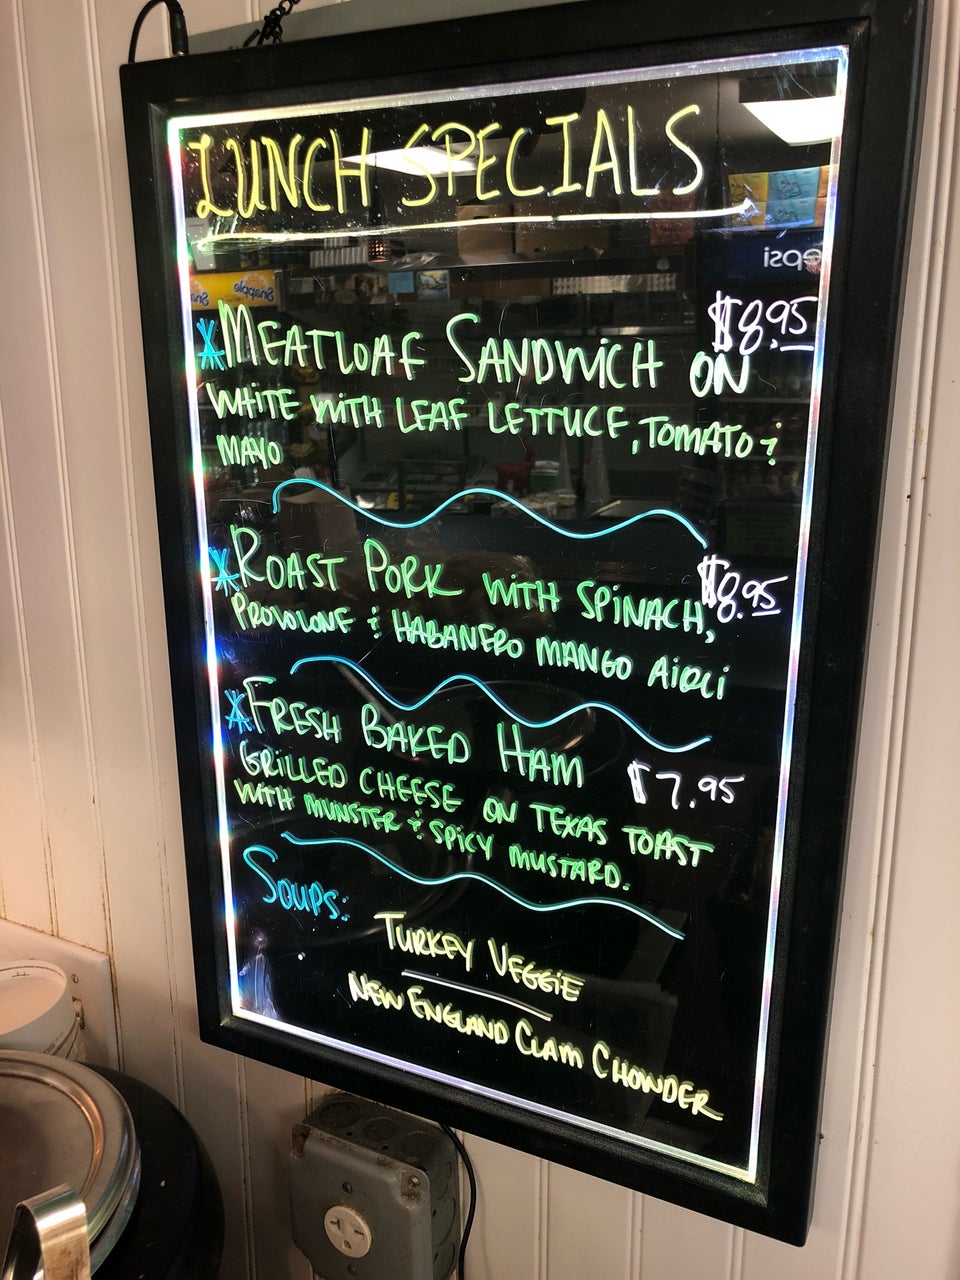 LUNCH SPECIALS
*MEATLOAF SANDWICH ON $8.95
WHITE WITH LEAF LETTUCE, TOMATO &
MAYO
*ROAST PORK WITH SPINACH, $8.95
PROVOLONE & HABANERO MANGO AIOLI
*FRESH BAKED HAM $7.95
GRILLED CHEESE ON TEXAS TOAST
WITH MUNSTER & SPICY MUSTARD.
SOUPS:
TURKEY VEGGIE
NEW ENGLAND CLAM CHOWDER
pepsi
Snapple
Snapple